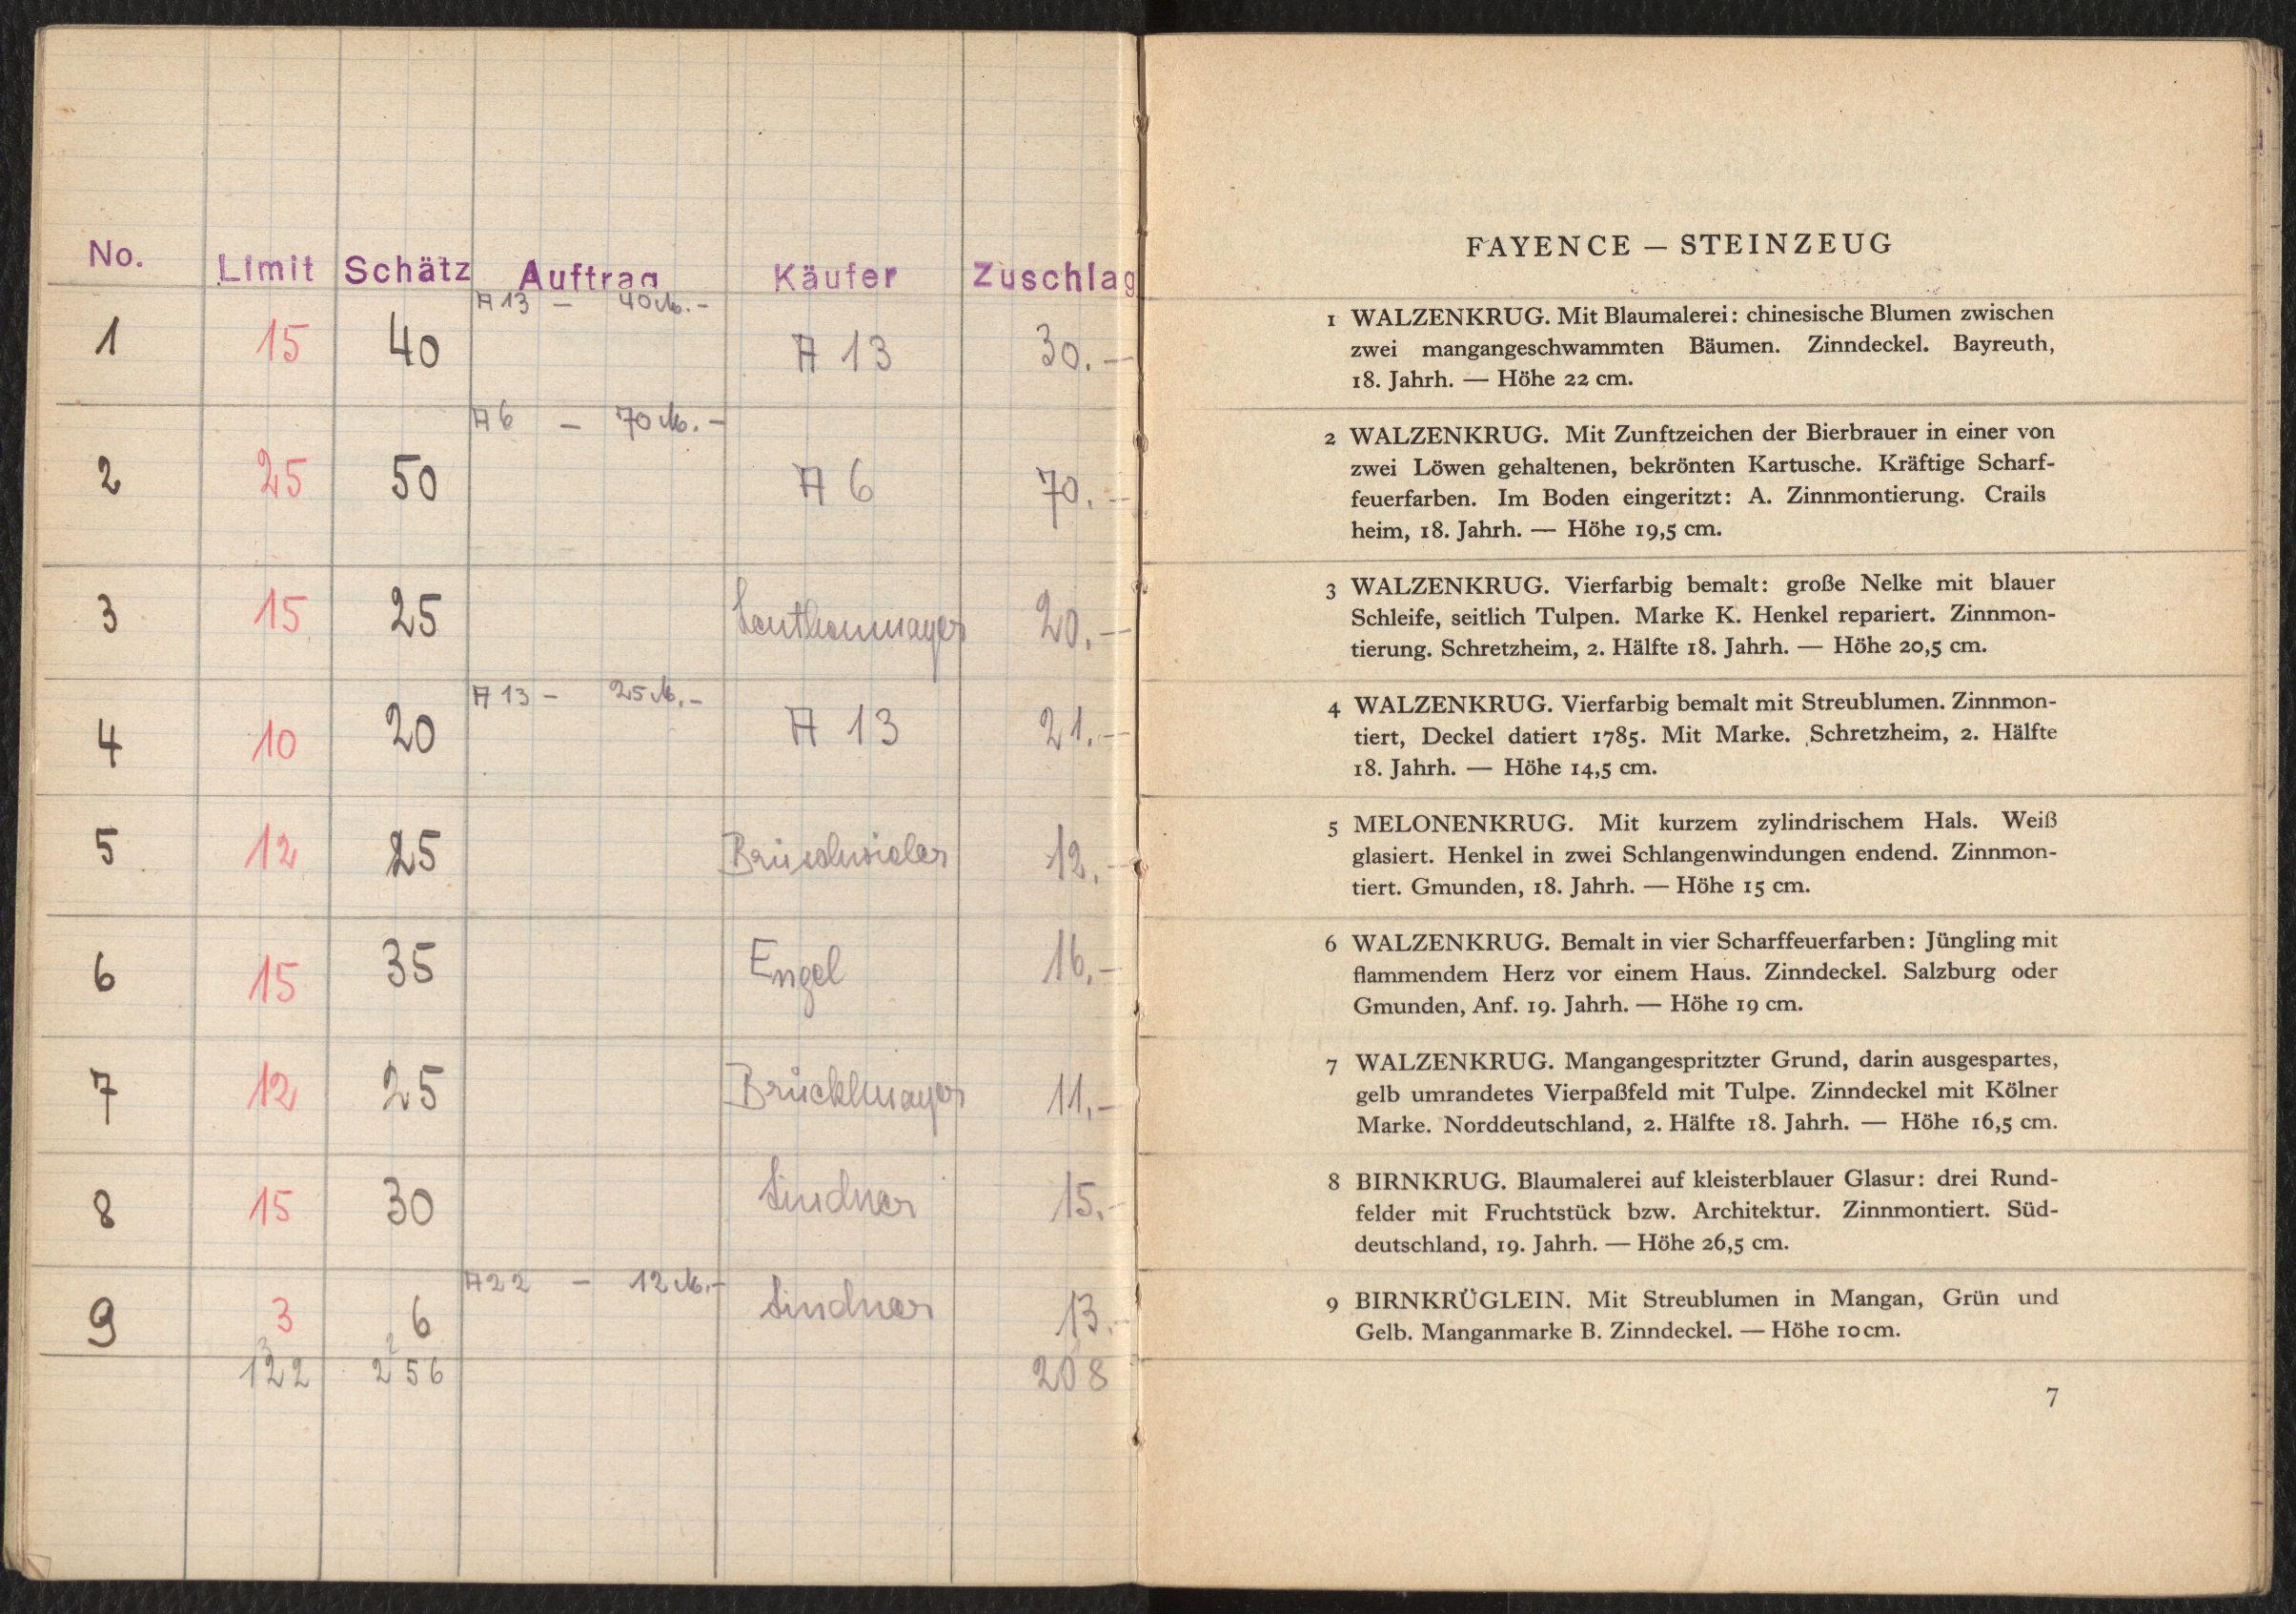 No. Limit Schätz Auftrag Käufer Zuschlag
A 13 — 40 M.-
1 15 40 A 13 30.—
A 6 — 70 M.-
2 25 50 A 6 70.—
3 15 25 20.—
A 13 — 25 M.-
4 10 20 A 13 21.—
5 12 25 12.—
6 15 35 Engel 16.—
7 12 25 Brücklmayer 11.—
8 15 30 Lindner 15.-
A 22 — 12 M.-
9 3 6 Lindner 13.-
122 256 208
FAYENCE — STEINZEUG
1 WALZENKRUG. Mit Blaumalerei: chinesische Blumen zwischen
zwei mangangeschwammten Bäumen. Zinndeckel. Bayreuth,
18. Jahrh. — Höhe 22 cm.
2 WALZENKRUG. Mit Zunftzeichen der Bierbrauer in einer von
zwei Löwen gehaltenen, bekrönten Kartusche. Kräftige Scharf-
feuerfarben. Im Boden eingeritzt: A. Zinnmontierung. Crails
heim, 18. Jahrh. — Höhe 19,5 cm.
3 WALZENKRUG. Vierfarbig bemalt: große Nelke mit blauer
Schleife, seitlich Tulpen. Marke K. Henkel repariert. Zinnmon-
tierung. Schretzheim, 2. Hälfte 18. Jahrh. — Höhe 20,5 cm.
4 WALZENKRUG. Vierfarbig bemalt mit Streublumen. Zinnmon-
tiert, Deckel datiert 1785. Mit Marke. Schretzheim, 2. Hälfte
18. Jahrh. — Höhe 14,5 cm.
5 MELONENKRUG. Mit kurzem zylindrischem Hals. Weiß
glasiert. Henkel in zwei Schlangenwindungen endend. Zinnmon-
tiert. Gmunden, 18. Jahrh. — Höhe 15 cm.
6 WALZENKRUG. Bemalt in vier Scharffeuerfarben: Jüngling mit
flammendem Herz vor einem Haus. Zinndeckel. Salzburg oder
Gmunden, Anf. 19. Jahrh. — Höhe 19 cm.
7 WALZENKRUG. Mangangespritzter Grund, darin ausgespartes,
gelb umrandetes Vierpaßfeld mit Tulpe. Zinndeckel mit Kölner
Marke. Norddeutschland, 2. Hälfte 18. Jahrh. — Höhe 16,5 cm.
8 BIRNKRUG. Blaumalerei auf kleisterblauer Glasur: drei Rund-
felder mit Fruchtstück bzw. Architektur. Zinnmontiert. Süd-
deutschland, 19. Jahrh. — Höhe 26,5 cm.
9 BIRNKRÜGLEIN. Mit Streublumen in Mangan, Grün und
Gelb. Manganmarke B. Zinndeckel. — Höhe 10 cm.
7